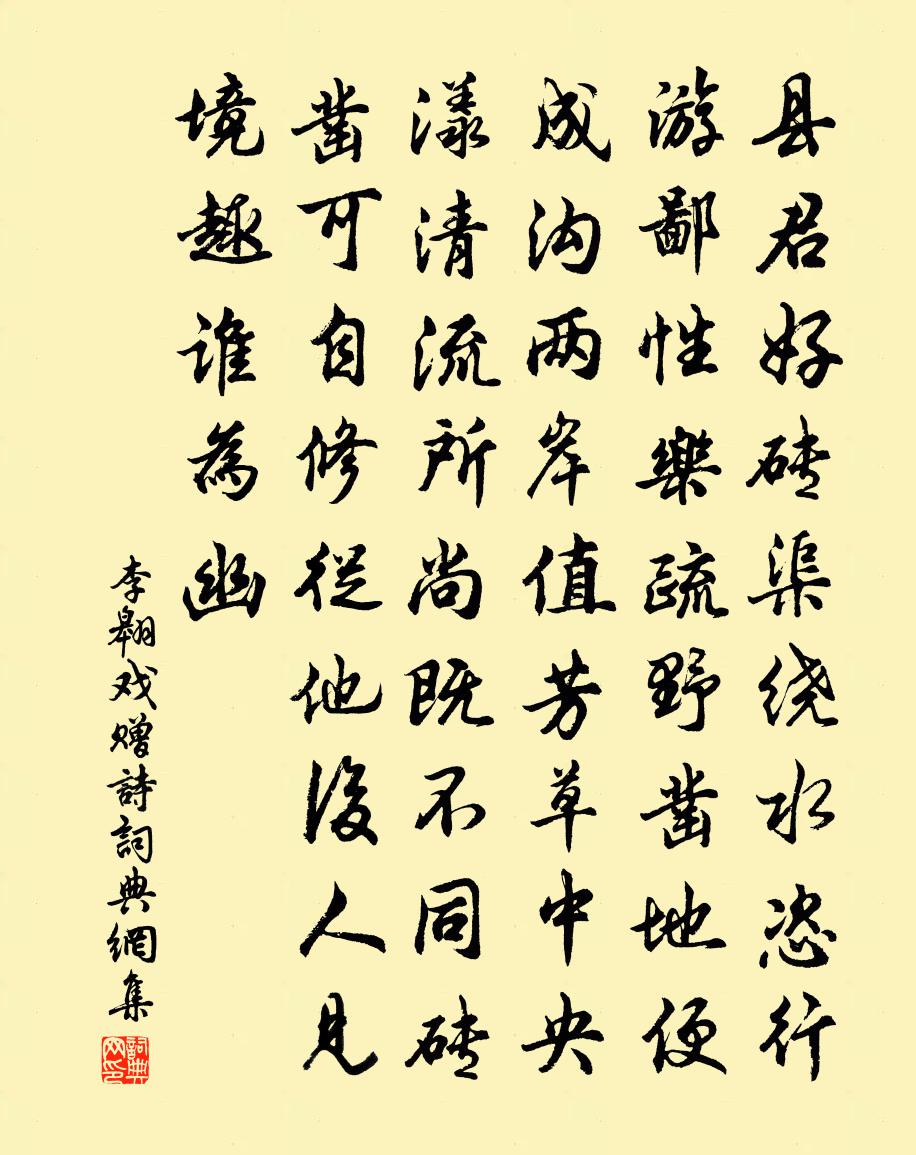 县君好砖渠绕水恣行
游鄙性樂疏野凿地便
成沟两岸值芳草中央
漾清流所尚既不同砖
凿可自修從他後人见
境趣谁為幽
李翱戏赠詩詞典網集
詞典网印